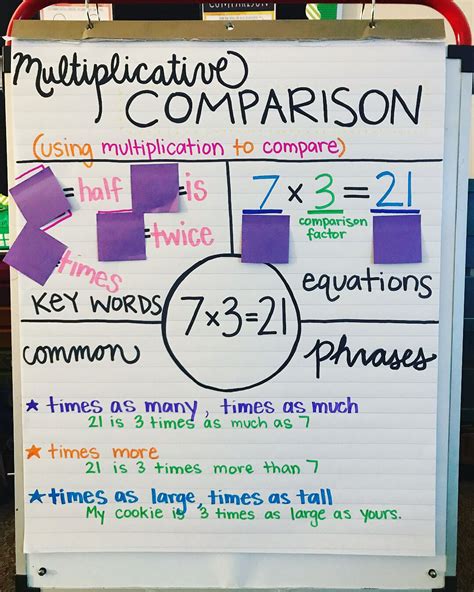 COMPARISON
Multiplicative
COMPARISON
(using multiplication to compare)
=half =is
=twice
=times
KEY WORDS
7 x 3 = 21
comparison
factor
equations
7x3=21
common phrases
★ times as many, times as much
21 is 3 times as much as 7
★ times more
21 is 3 times more than 7
★ times as large, times as tall
My cookie is 3 times as large as yours.